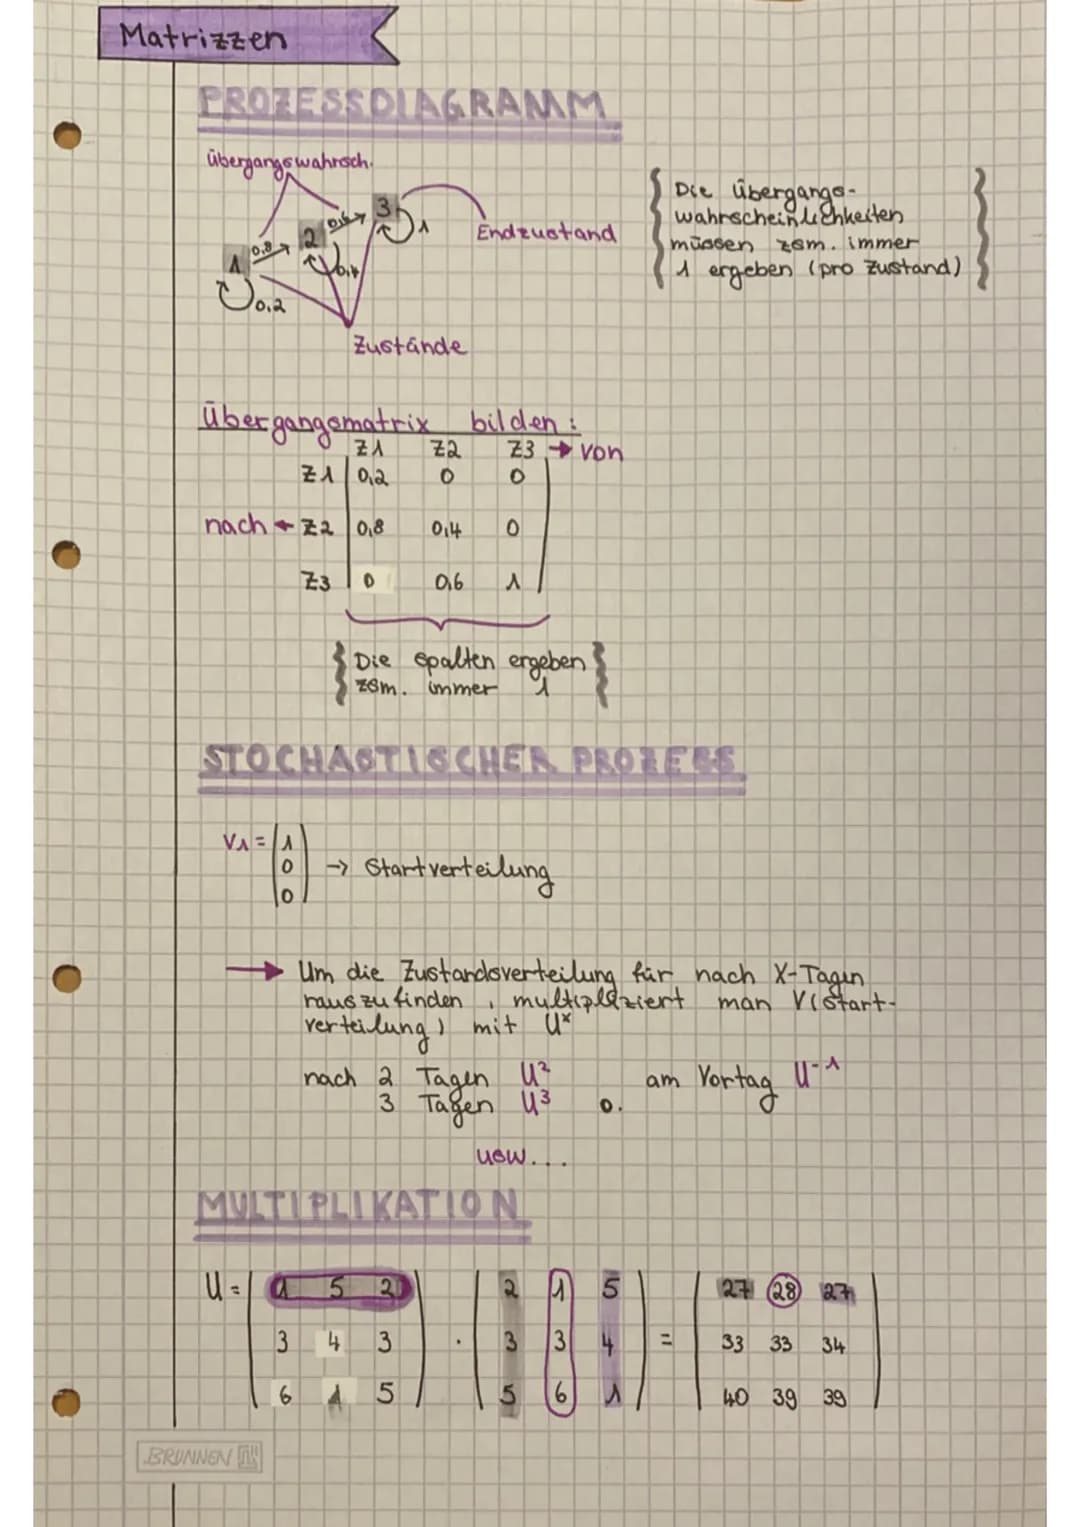 Matrizzen
PROZESSDIAGRAMM
Übergangswahrsch.
1 0,8 2 0,6 3 1
0,2 0,4
Endzustand
Zustände
Die Übergangs-
wahrscheinlichkeiten
müssen zsm. immer
1 ergeben (pro Zustand)
Übergangsmatrix bilden:
Z1 Z2 Z3 → von
Z1 0,2 0 0
nach ← Z2 0,8 0,4 0
Z3 0 0,6 1
Die Spalten ergeben
zsm. immer 1
STOCHASTISCHER PROZESS
V1 = (1
0 → Startverteilung
0)
→ Um die Zustandsverteilung für nach X-Tagen
rauszufinden, multipliziert man V(Start-
verteilung) mit U^x
nach 2 Tagen U² am Vortag U⁻¹
3 Tagen U³ o.
usw...
MULTIPLIKATION
U = 1 5 2 2 1 5 27 28 27
3 4 3 · 3 3 4 = 33 33 34
6 1 5 5 6 1 40 39 39
BRUNNEN